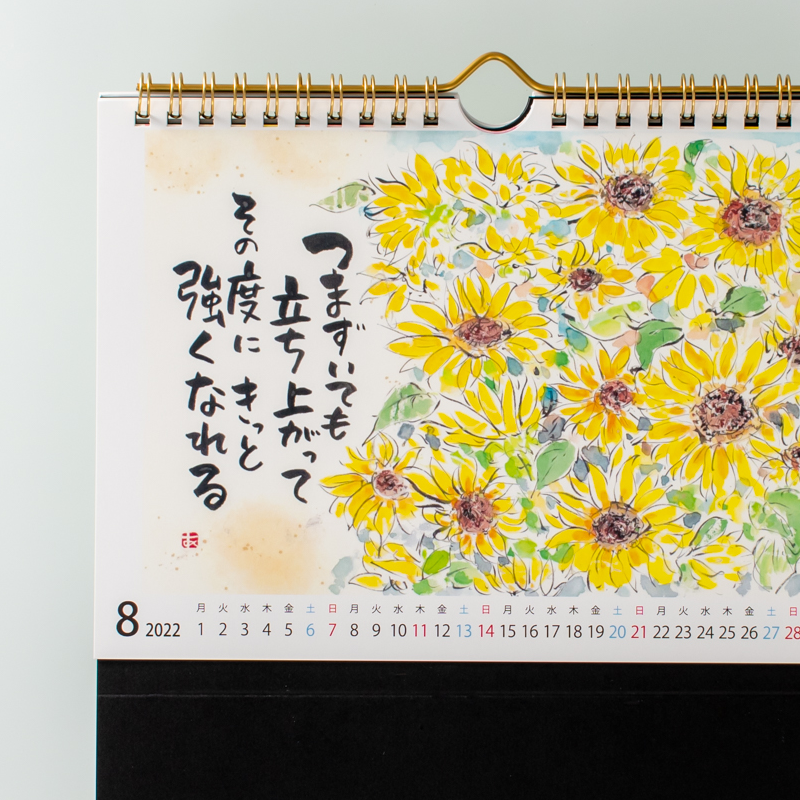 つまずいても
立ち上がって
その度にきっと
強くなれる
あ
月 火 水 木 金 土 日 月 火 水 木 金 土 日 月 火 水 木 金 土 日 月 火 水 木 金 土 日
8 2022 1 2 3 4 5 6 7 8 9 10 11 12 13 14 15 16 17 18 19 20 21 22 23 24 25 26 27 28